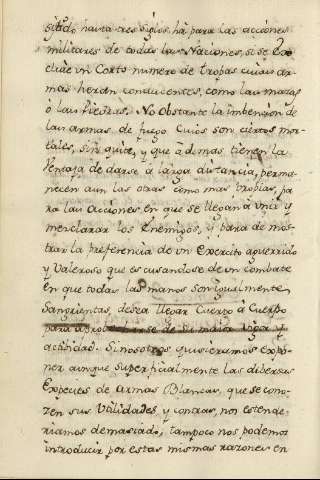 sitado hasta tres siglos ha para las acciones
militares de todas las Naciones, si se exe
cluie un Corto numero de tropas cuias ar-
mas heran conducentes, como las mazas
ò las piedras. No Obstante la imbencion de
las armas de fuego Cuios son ciertos mor-
tales, sin quite, y que ademas tienen la
Ventaja de darse à larga distancia, perma-
necen aun las otras como mas propias, pa
ra las Acciones en que se llegan à unir y
menclarar los Enemigos, y para demos-
trar la preferencia de un Exercito aguerrido
y Valeroso que escusandose de un combate
en que todas las manos son igualmente
Sangrientas, desea llegar Cuerpo à Cuerpo
para de su maior vigor y
actibidad. Si nosotros quisieramos Expo-
ner aunque superficialmente las diversas
Expecies de armas Blancas, que se cono-
zen sus Utilidades y contras, nos estende-
riamos demasiado; tampoco nos podemos
introducir por estas mismas razones en